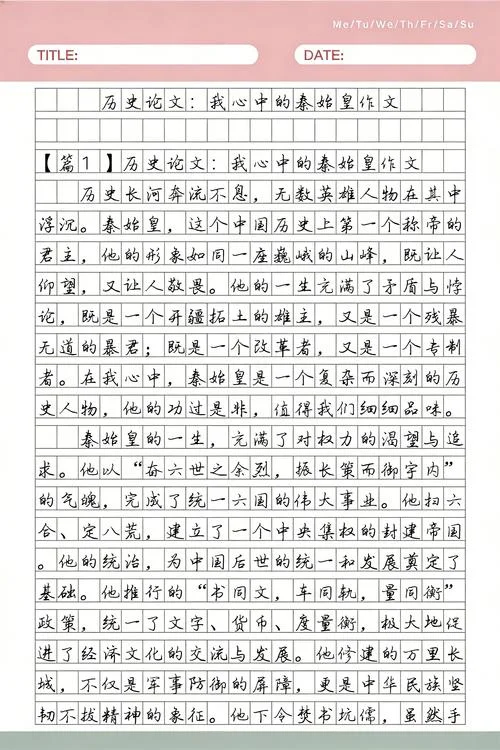 Me/Tu/We/Th/Fr/Sa/Su
TITLE:
DATE:
历史论文：我心中的秦始皇作文
【篇1】历史论文：我心中的秦始皇作文
历史长河奔流不息，无数英雄人物在其中
浮沉。秦始皇，这个中国历史上第一个称帝的
君主，他的形象如同一座巍峨的山峰，既让人
仰望，又让人敬畏。他的一生充满了矛盾与悖
论，既是一个开疆拓土的雄主，又是一个残暴
无道的暴君；既是一个改革者，又是一个专制
者。在我心中，秦始皇是一个复杂而深刻的历
史人物，他的功过是非，值得我们细细品味。
秦始皇的一生，充满了对权力的渴望与追
求。他以“奋六世之余烈，振长策而御宇内”
的气魄，完成了统一六国的伟大事业。他扫六
合、定八荒，建立了一个中央集权的封建帝国
。他的统治，为中国后世的统一和发展奠定了
基础。他推行的“书同文，车同轨，量同衡”
政策，统一了文字、货币、度量衡，极大地促
进了经济文化的交流与发展。他修建的万里长
城，不仅是军事防御的屏障，更是中华民族坚
韧不拔精神的象征。他下令焚书坑儒，虽然手